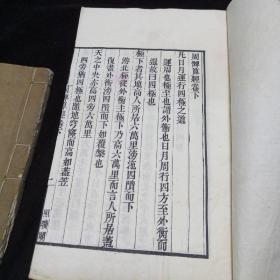 周髀算經卷下
凡日月運行四極之道
運周也極至也謂外衡也日月周行四方至外衡而
還故曰四極也
極下者其地高人所居六萬里滂沲四隤而下
游北極從外衡至極下乃高六萬里而言人所居蓋
復盡外衡滂沲四隤而下如覆槃也
天之中央亦高四旁六萬里
四旁猶四極也隨地穹窿而高如蓋笠
一
照曠閣